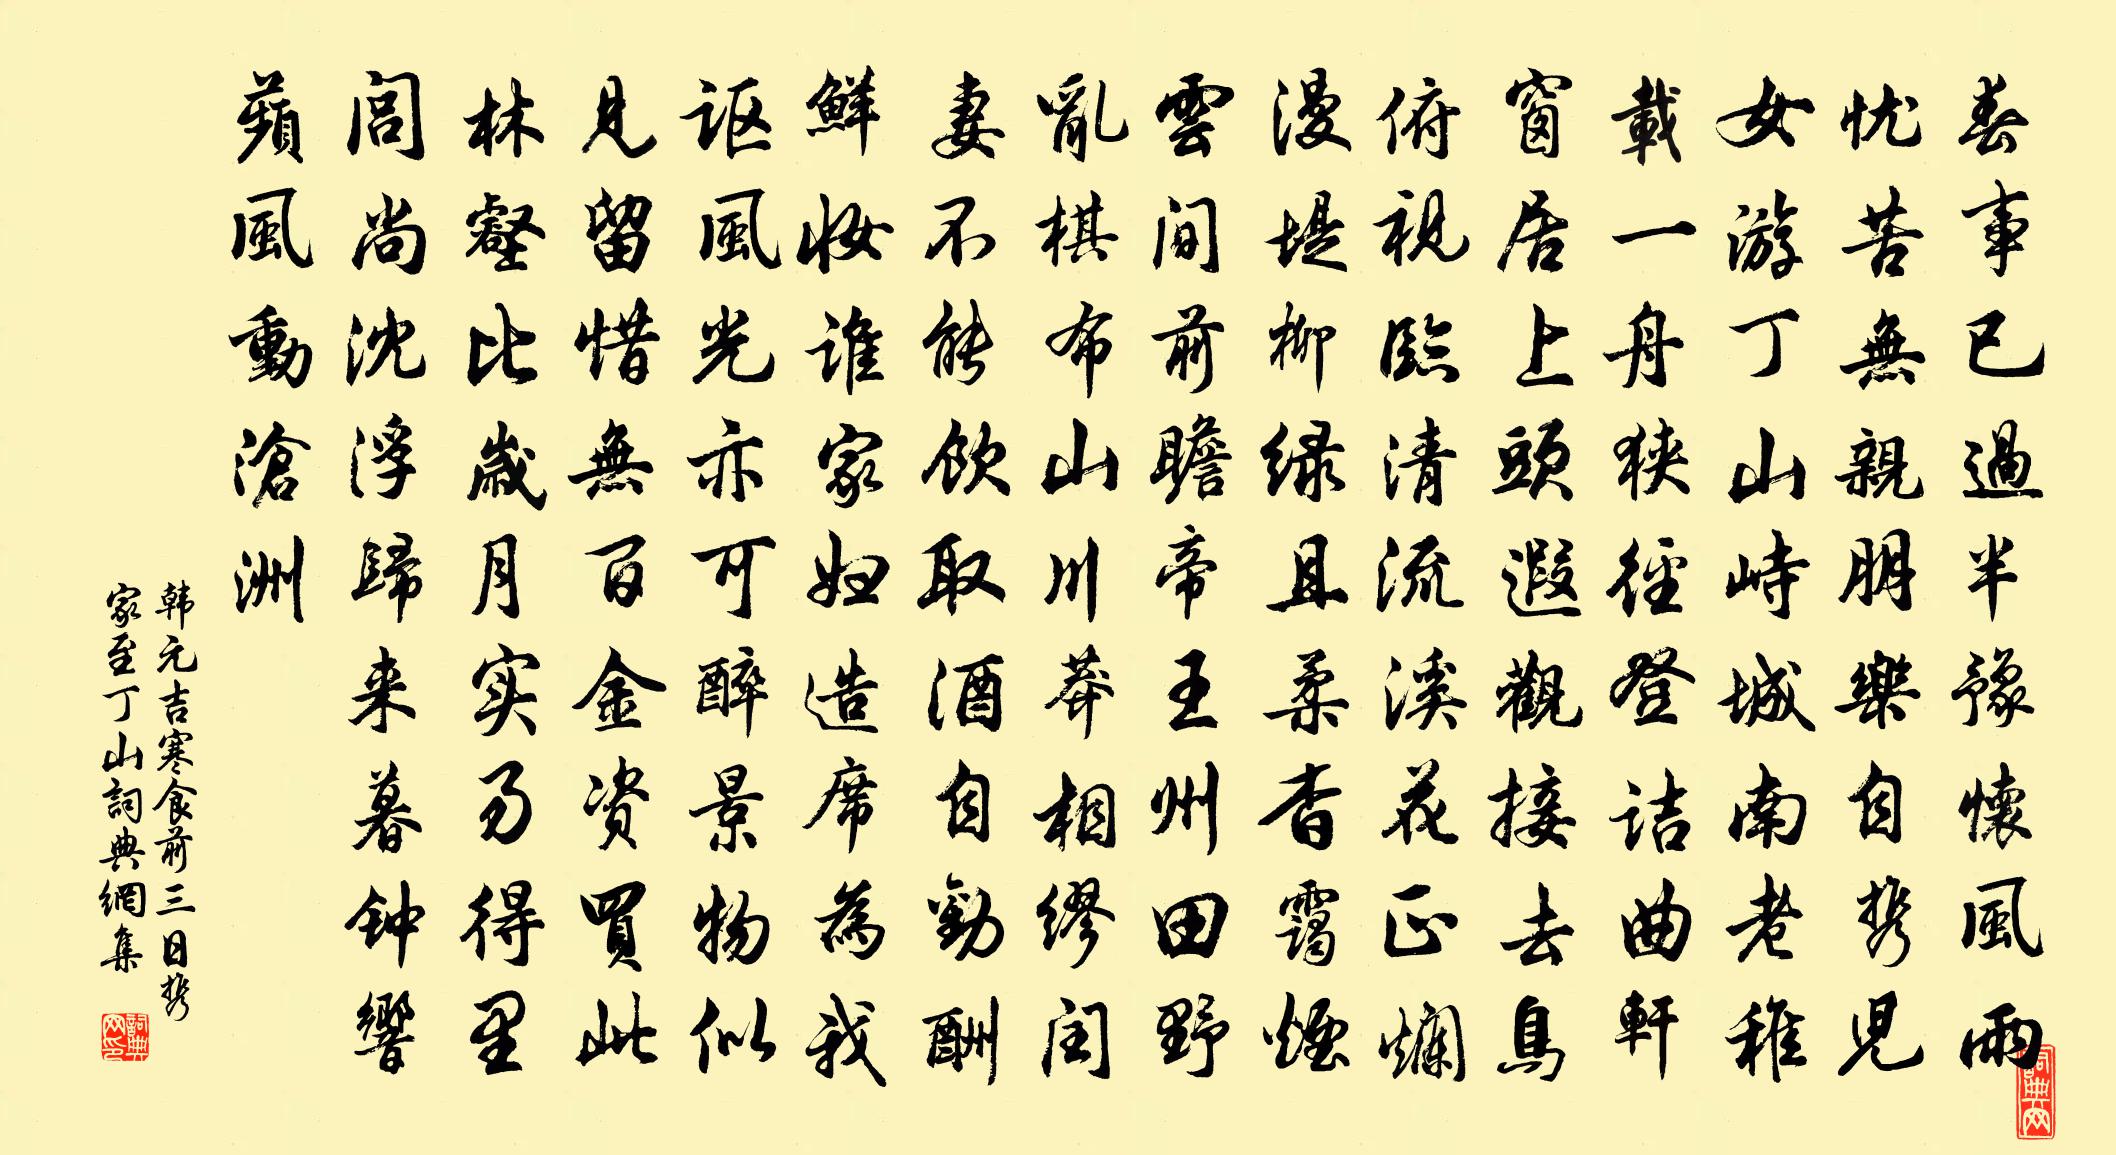 春事已過半豫懷風雨
忧苦無親朋樂自携兒
女游丁山峙城南老稚
載一舟狹徑登诘曲軒
窗居上頭遐觀接去鳥
俯視臨清流溪花正爛
漫堤柳緑且柔杳靄煙
雲间前瞻帝王州田野
亂棋布山川莽相缪闰
妻不能飲取酒自勸酬
鮮妝谁家妇造席為我
讴風光亦可醉景物似
見留惜無百金资買此
林壑比歲月实易得里
闾尚沈浮歸来暮钟響
蘋風動滄洲
韩元吉寒食前三日携
家至丁山詞典網集
詞典网印
詞典网